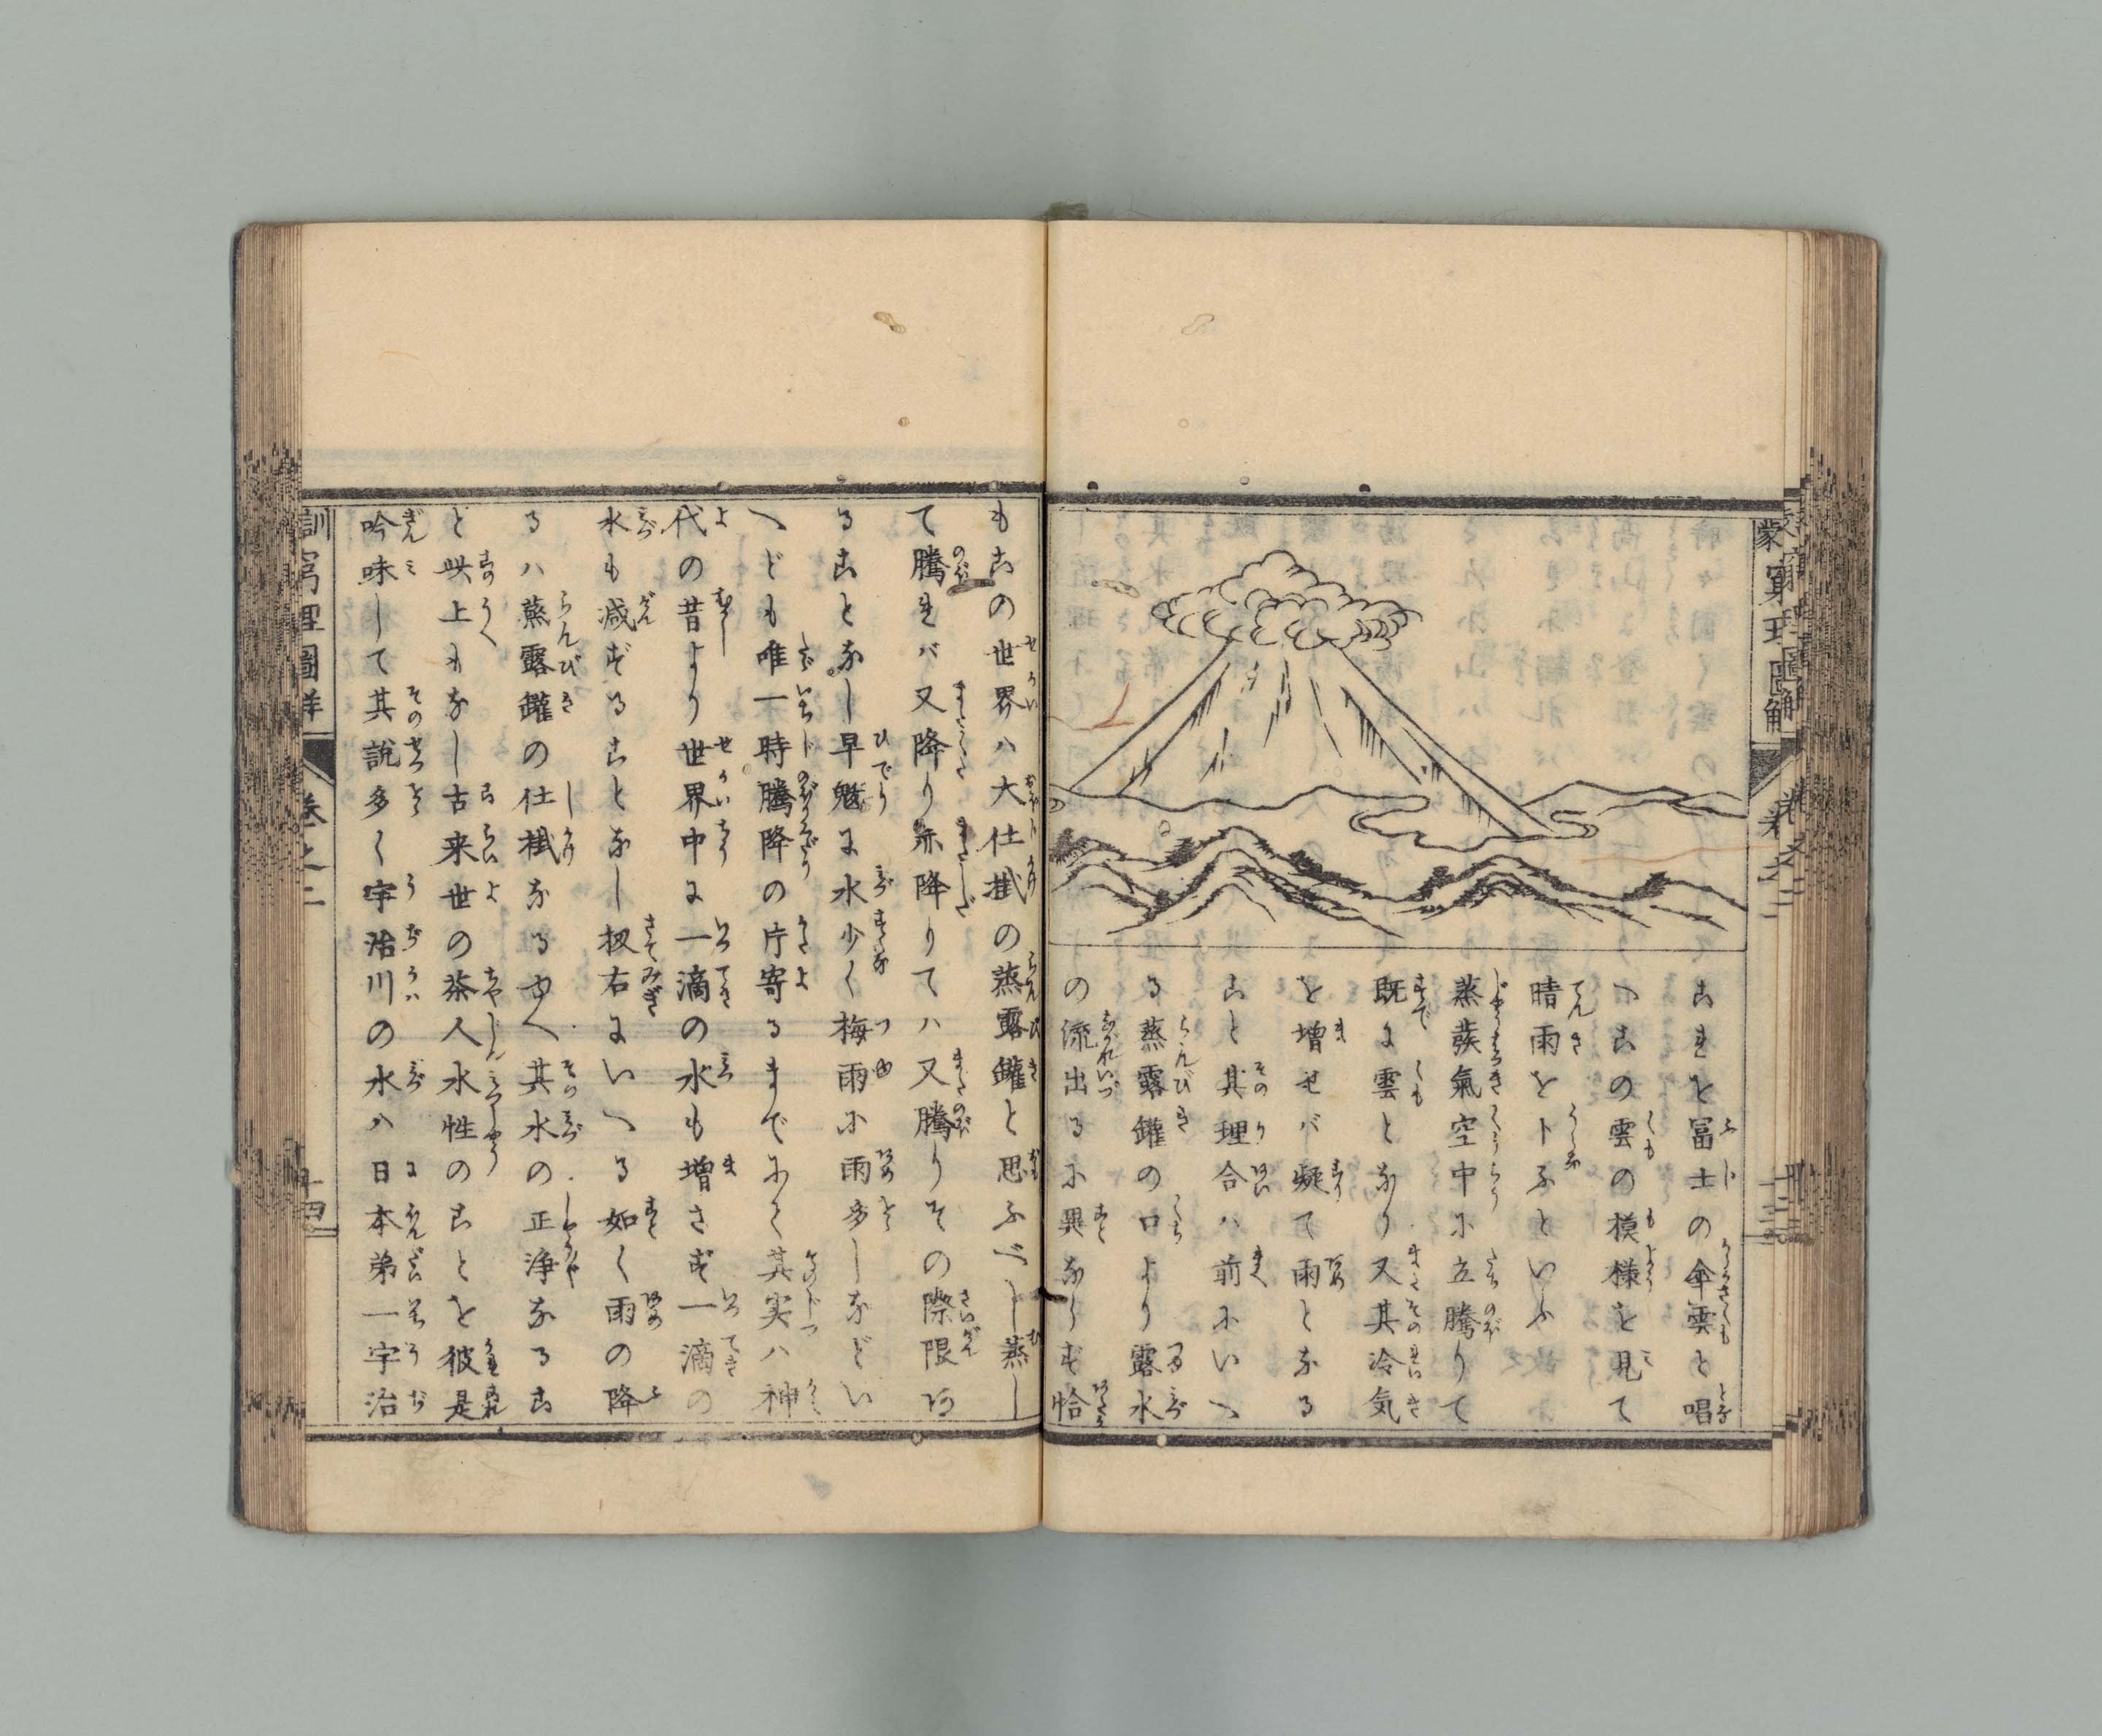 これを冨士の傘雲と唱
へこの雲の模様を見て
晴雨をトふといふ
蒸発氣空中に立騰りて
既に雲となり又其冷気
を増せバ凝て雨となる
こと其理合ハ前にいへ
る蒸露鑵の口より露水
の流出るに異ならず恰
もこの世界ハ大仕掛の蒸露鑵と思ふべし蒸し
て騰れバ又降り亦降りてハ又騰りその際限あ
ることなし旱魃に水少く梅雨に雨多しなどい
へども唯一時騰降の片寄るまでにて其実ハ神
代の昔より世界中に一滴の水も増さず一滴の
水も減ずることなし扨右にいへる如く雨の降
るハ蒸露鑵の仕掛なるゆへ其水の正浄なるこ
と此上もなし古来世の茶人水性のことを彼是
吟味して其説多く宇治川の水ハ日本第一宇治
訓
蒙窮理圖解
巻之二
十四